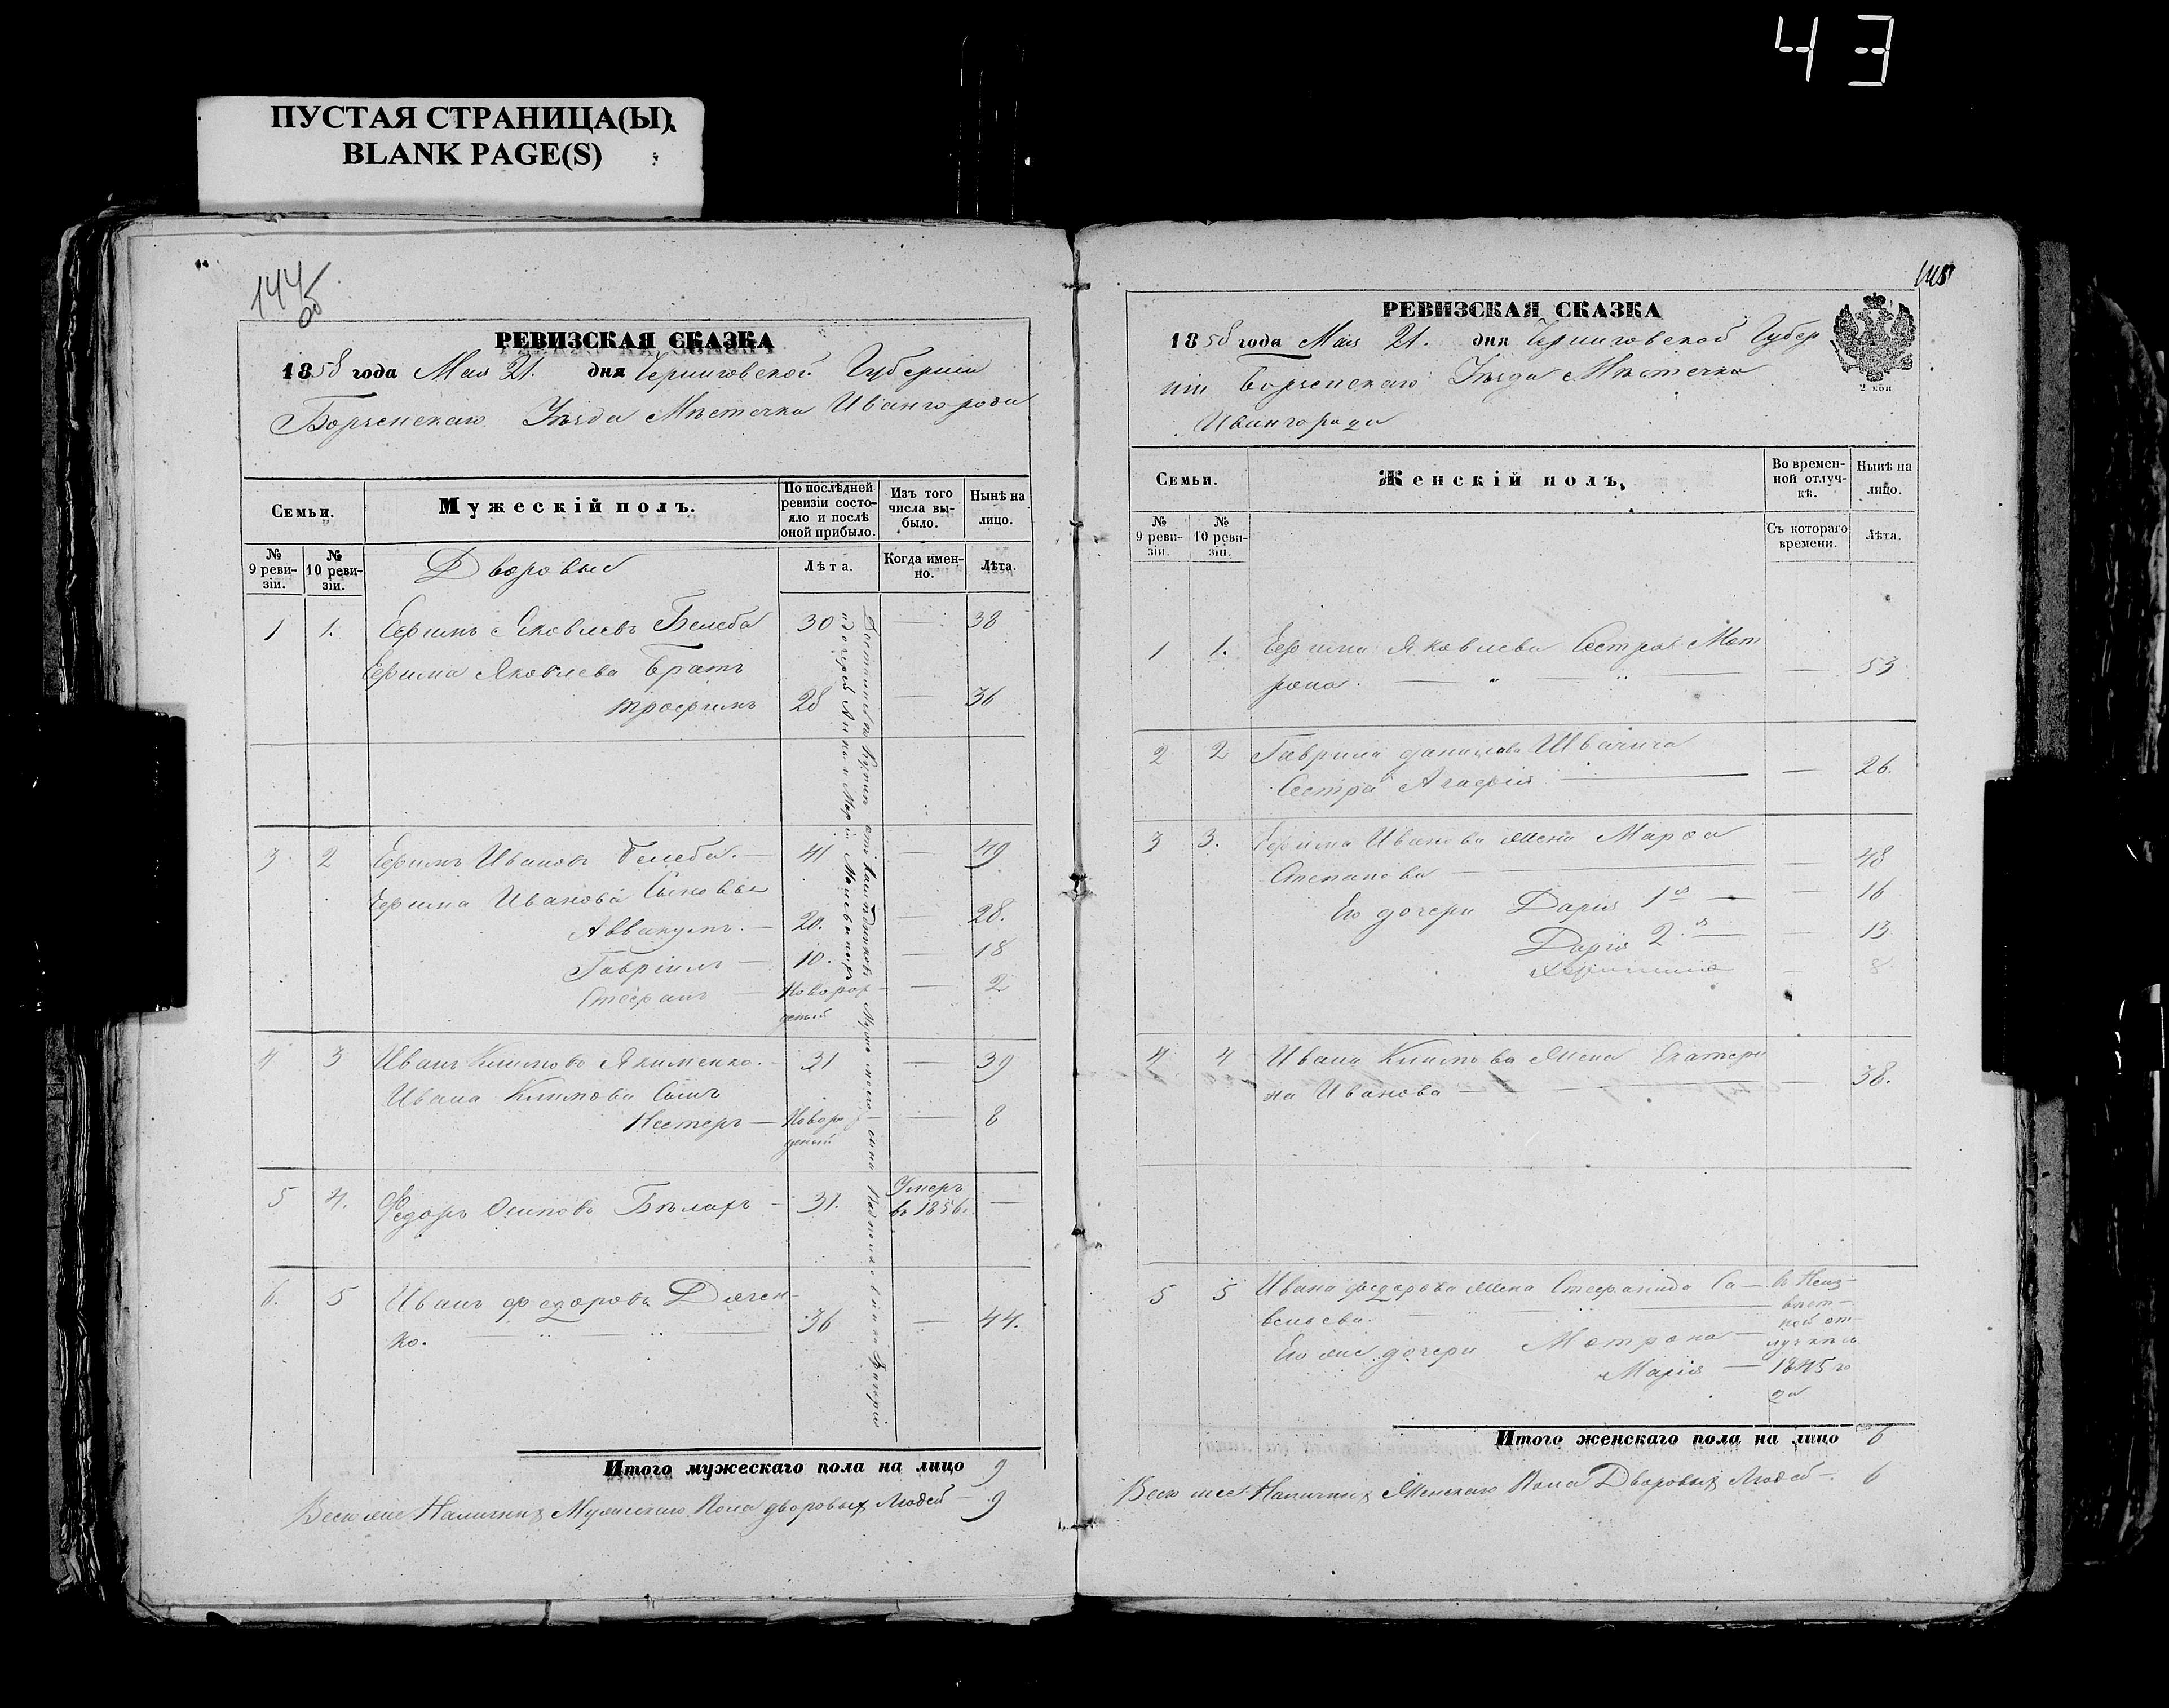 43
ПУСТАЯ СТРАНИЦА(Ы)
BLANK PAGE(S)
144
об
РЕВИЗСКАЯ СКАЗКА
1858 года Мая 21. дня Черниговской Губерніи
Борзенскаго Уѣзда Мѣстечка Ивангорода
Семьи.
Мужескій полъ.
По послѣдней ревизіи состояло и послѣ оной прибыло.
Изъ того числа выбыло.
Нынѣ на лицо.
№ 9 ревизіи.
№ 10 ревизіи.
Дворовые
Лѣта.
Когда именно.
Лѣта.
1 1. Ефимъ Яковлевъ Белеба 30 — 38
Ефима Яковлева Братъ
Трофимъ 28 — 36
3 2 Ефимъ Ивановъ Белеба. — 41 — 49
Ефима Иванова Сыновья
Аввакумъ. — 20. — 28.
Гавріилъ — 10. — 18
Стефанъ — Новорож — 2
деный
4 3 Иванъ Климовъ Якименко. — 31 — 39
Ивана Климова Сынъ
Несторъ — Новорож — 8
деный
5 4. Федоръ Осиповъ — 31. Умеръ въ 1856. —
6. 5 Иванъ Федоровъ Дячен-
ко. 36 — 44.
Итого мужескаго пола на лицо 9
Всего же Наличныхъ Мужескаго Пола дворовыхъ Людей — 9
145
РЕВИЗСКАЯ СКАЗКА
1858 года Мая 21. дня Черниговской Губер
ніи Борзенскаго Уѣзда Мѣстечка
Ивангорода
2 коп
Семьи.
Женскій полъ.
Во временной отлучкѣ.
Нынѣ на лицо.
№ 9 ревизіи.
№ 10 ревизіи.
Съ котораго времени.
Лѣта.
1 1. Ефима Яковлева Сестра Мот
рона. — 53
2 2 Гаврила Данилова Швачича
Сестра Агафія — 26.
3 3. Ефима Иванова Жена Марфа
Степанова — 48
Его дочери Дарія 1я — 16
Дарія 2я — 13
— 8
4. 4 Ивана Климова Жена Екатери
на Иванова — 38.
5 5 Ивана Федорова Жена Стефанида Са- въ Неиз-
вельева. вѣст-
ной от-
Его же дочери Мотрона — лучкѣ съ
Марія — 1845 го
да
Итого женскаго пола на лицо 6
Всего же Наличныхъ Женскаго Пола Дворовыхъ Людей — 6